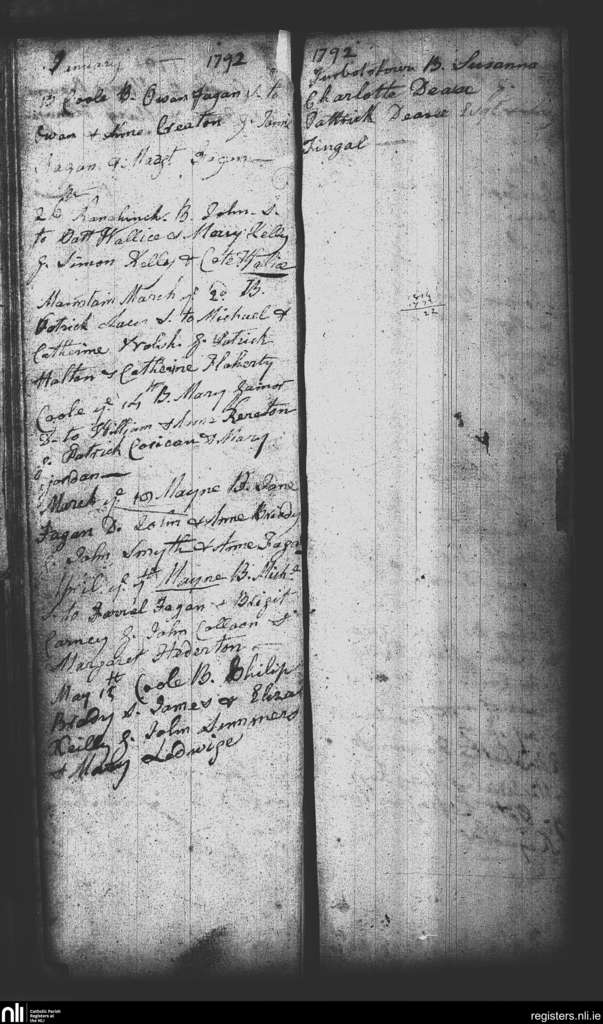 January 1792
13 Coole B. Owen Fagan S. to
Owen & Anne Creaton g. James
Fagan & Margt Fagan
26 B. John S.
to Batt Wallice & Merry Kelly
g. Simon Kelly & Cate Wallice
March ye 2d B.
Patrick S. to Michael &
Catherine Walsh. g. Patrick
Halton & Catherine Flaherty
Coole ye 14th B Mary Gainor
D. to William & Anne Kereton
g. Patrick Corican & Mary
Jordan
March ye 18 Mayne B. Jane
Fagan D. Colin & Anne Briody
John Smyth & Anne Fagan
April ye 7th Mayne B. Mich.
S. to Farrel Fagan & Brigit
Carney g. John &
Margaret Hederton
May 13th Coole B. Philip
Briody S. James & Eliza
Reilly g. John Summers
& Mary Ledwige
1792
Turbotstown B. Susanna
Charlotte Dease
Patrick Dease Esqr
Fingal
22
nli
Catholic Parish
Registers at
the NLI
registers.nli.ie